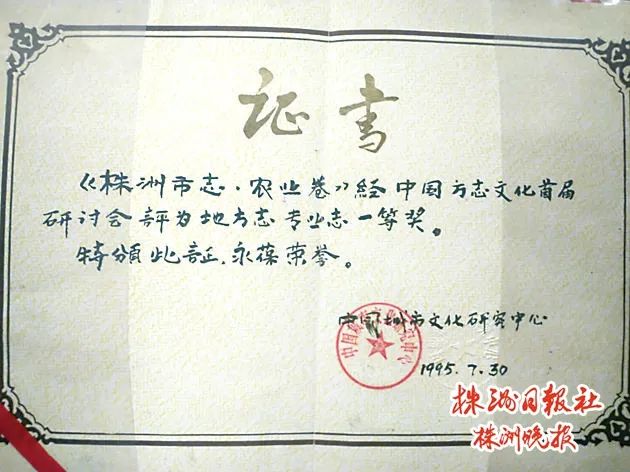 证书
《株洲市志·农业卷》经中国方志文化首届
研讨会評为地方志专业志一等奖。
特頒此証,永葆荣誉。
中国城市文化研究中心
1995.7.30
株洲日报社
株洲晚报